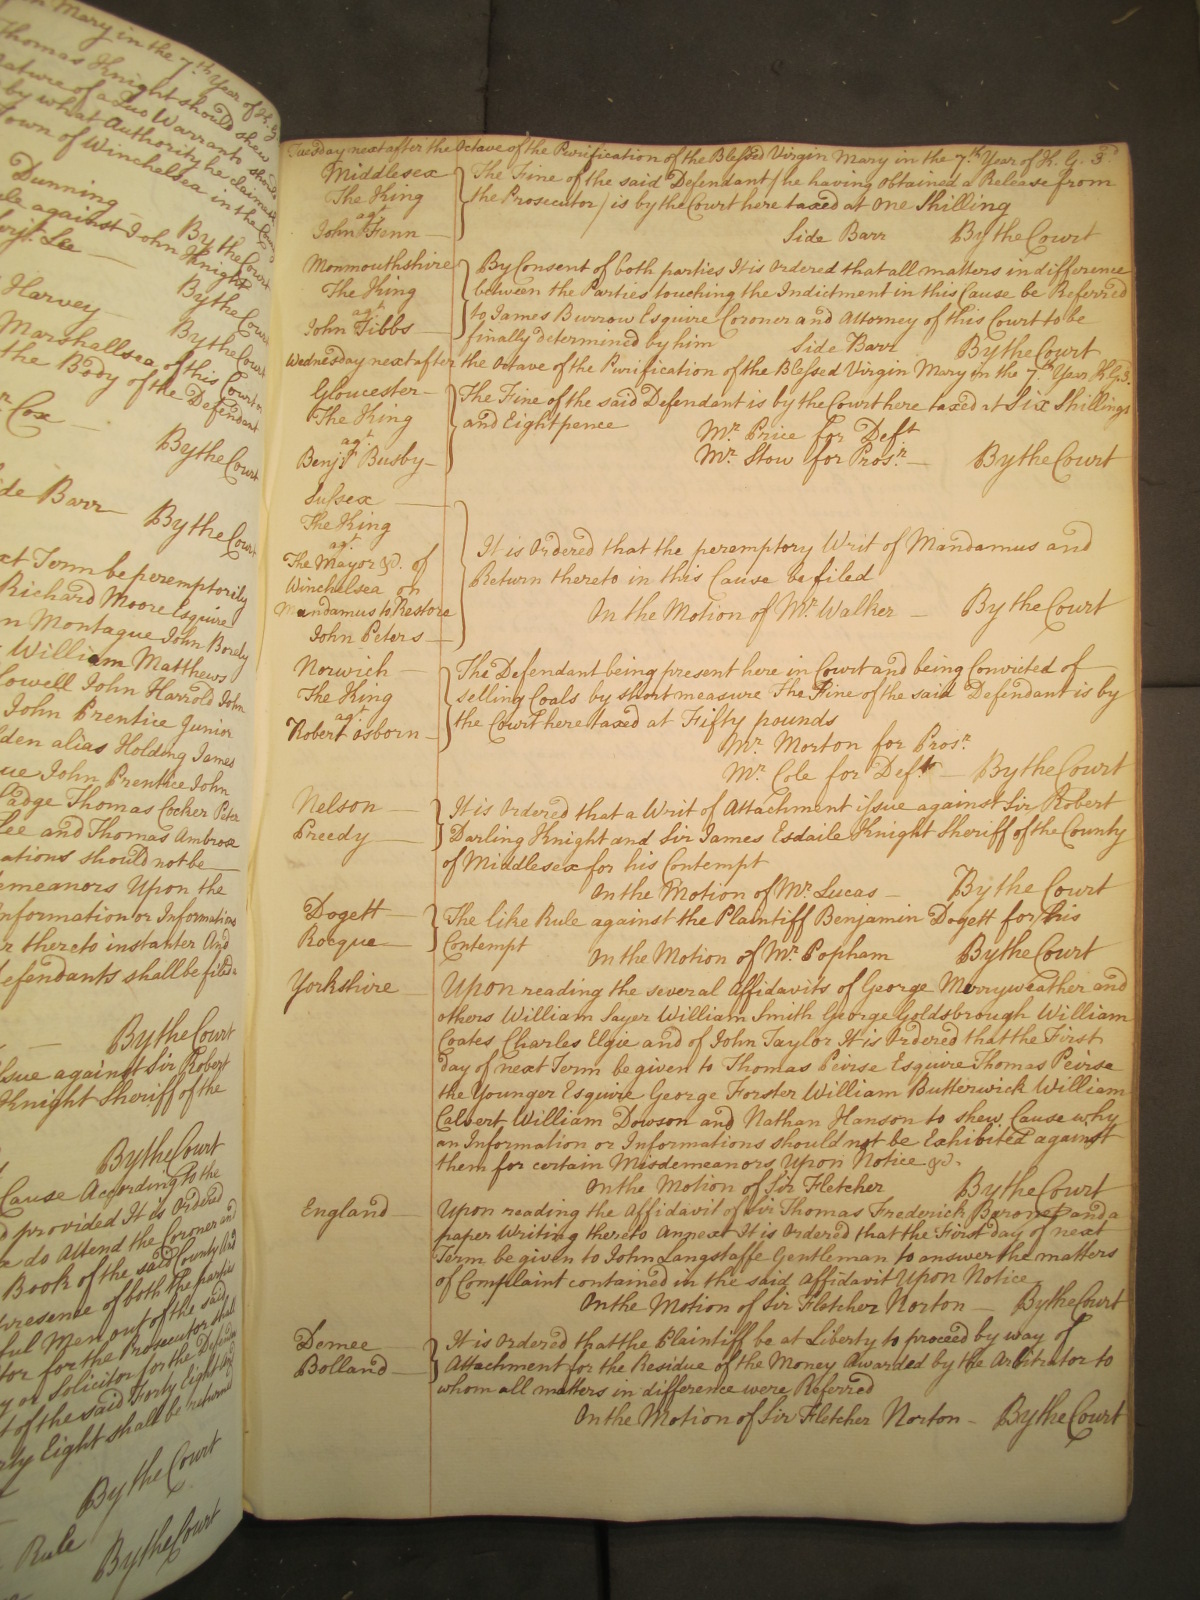 Mary in the 7th Year of K. G 3
Thomas Knight should shew
nature of a Quo Warranto should
by what Authority he claims
Town of Winchelsea in the
By the Court
Dunning
rule against John Knight
By the Court
Lee
Harvey
By the Court
Marshallsea of this Court
the Body of the Defendant
Cox
By the Court
Side Barr
By the Court
Term be peremptorily
Richard Moore Esquire
Montague John
William Matthews
John Harrold John
John Prentice Junior
alias Holding James
John Prentice John
Thomas Cocker Peter
Lee and Thomas Ambrose
should not be
Upon the
Information or Informations
thereto instanter And
Defendants shall be filed
By the Court
Issue against Sir Robert
Knight Sheriff of the
By the Court
Cause According to the
provided It is Ordered
do Attend the Coroner and
Book of the said County And
presence of both the parties
Men out of the said
for the Prosecutor shall
or Solicitor for the
of the said Forty Eight
Eight shall be returned
By the Court
Rule
By the Court
Tuesday next after the Octave of the Purification of the Blessed Virgin Mary in the 7th Year of K. G. 3d
Middlesex
The King
agt
John Fenn
The Fine of the said Defendant /he having obtained a Release from
the Prosecutor/ is by the Court here taxed at One Shilling
Side Barr By the Court
Monmouthshire
The King
agt
John Tibbs
By Consent of both parties It is Ordered that all matters in difference
between the Parties touching the Indictment in this Cause be Referred
to James Burrow Esquire Coroner and Attorney of this Court to be
finally determined by him
Side Barr By the Court
Wednesday next after the Octave of the Purification of the Blessed Virgin Mary in the 7th Year K G 3.
Gloucester
The King
agt
Benjn Busby
The Fine of the said Defendant is by the Court here taxed at Six Shillings
and Eight pence
Mr. Price for Deft
Mr. Stow for Prosr. By the Court
Sussex
The King
agt
The Mayor &c. of
Winchelsea on
Mandamus to Restore
John Peters
It is Ordered that the peremptory Writ of Mandamus and
Return thereto in this Cause be filed
On the Motion of Mr. Walker By the Court
Norwich
The King
agt
Robert Osborn
The Defendant being present here in Court and being Convicted of
selling Coals by short measure The Fine of the said Defendant is by
the Court here taxed at Fifty pounds
Mr. Morton for Prosr.
Mr. Cole for Deft. By the Court
Nelson
Preedy
It is Ordered that a Writ of Attachment issue against Sir Robert
Darling Knight and Sir James Esdaile Knight Sheriff of the County
of Middlesex for his Contempt
On the Motion of Mr. Lucas By the Court
Dogett
Rocque
The like Rule against the Plaintiff Benjamin Dogett for his
Contempt
On the Motion of Mr. Popham By the Court
Yorkshire
Upon reading the several Affidavits of George Merryweather and
others William Sayer William Smith George Goldsbrough William
Coates Charles Elgie and of John Taylor It is Ordered that the First
day of next Term be given to Thomas Peirse Esquire Thomas Peirse
the Younger Esquire George Forster William Butterwick William
Calvert William Dowson and Nathan Hanson to shew Cause why
an Information or Informations should not be Exhibited against
them for certain Misdemeanors Upon Notice &c.
On the Motion of Sir Fletcher By the Court
England
Upon reading the Affidavit of Sir Thomas Frederick Baronet and a
paper Writing thereto Annext It is Ordered that the First day of next
Term be given to John Langstaffe Gentleman to answer the matters
of Complaint contained in the said Affidavit Upon Notice
On the Motion of Sir Fletcher Norton By the Court
Demee
Bolland
It is Ordered that the Plaintiff be at Liberty to proceed by way of
Attachment for the Residue of the Money Awarded by the Arbitrator to
whom all matters in difference were Referred
On the Motion of Sir Fletcher Norton By the Court